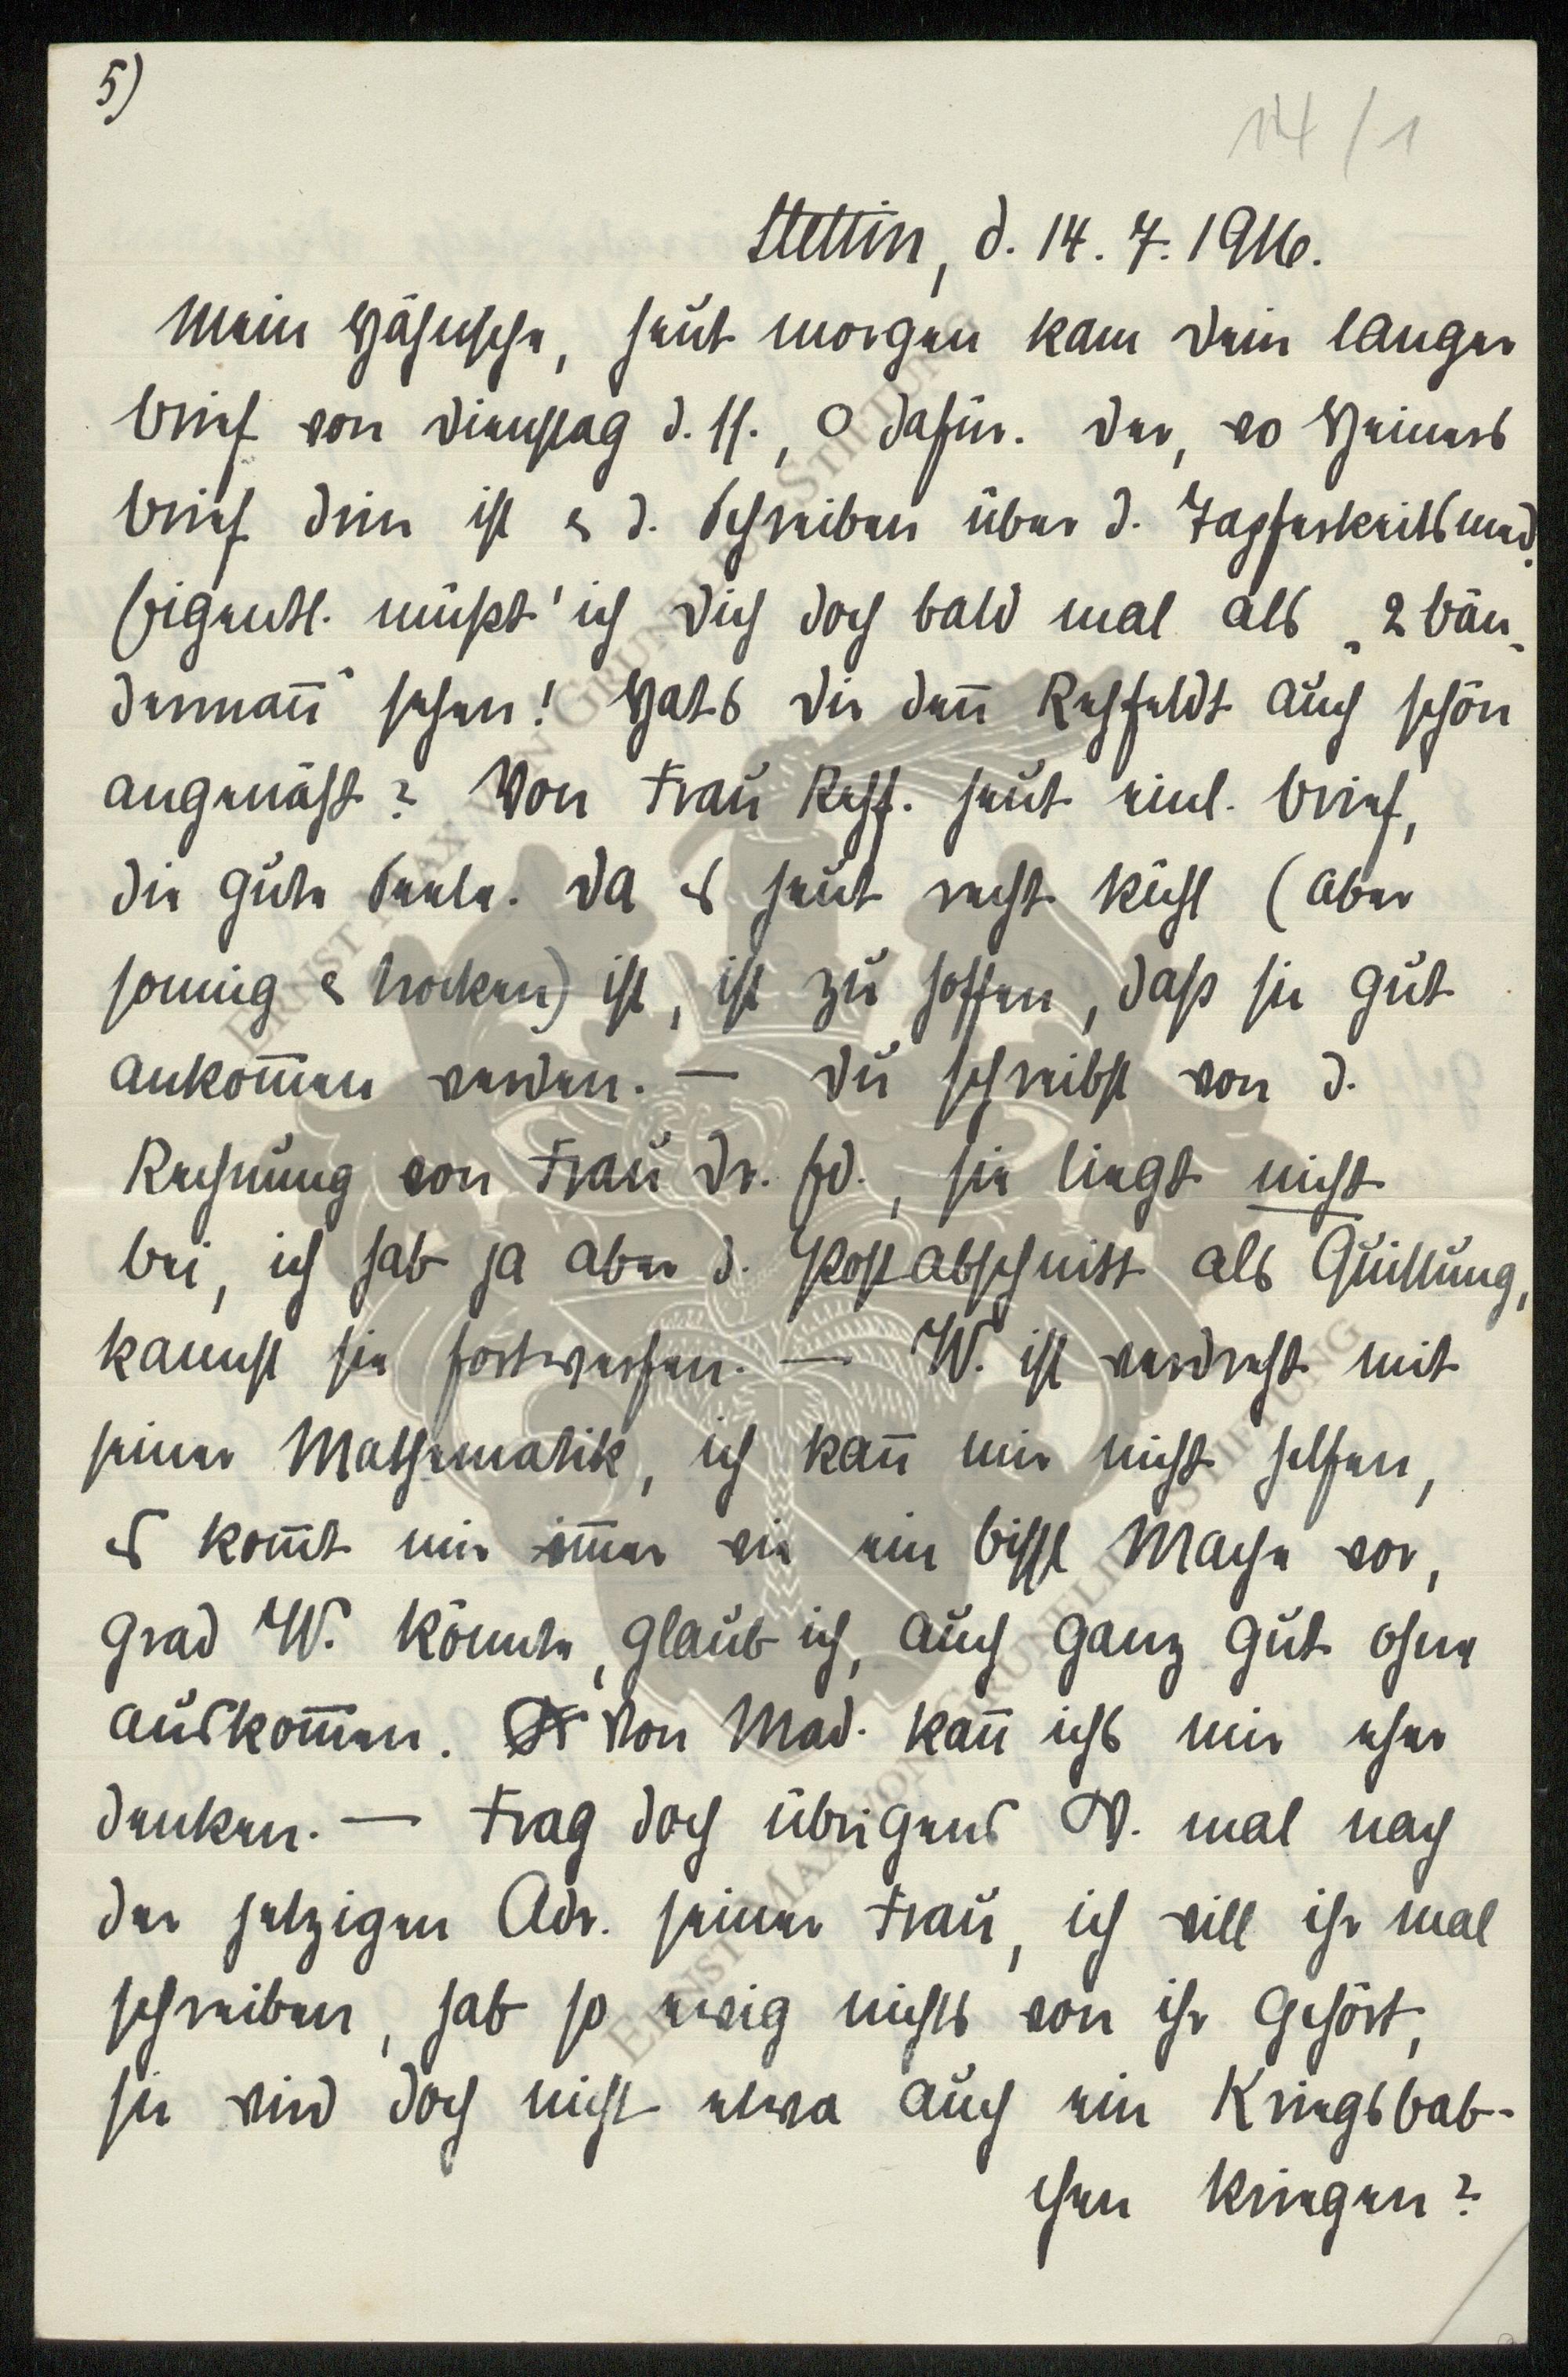 5)
14/1
Stettin, d. 14. 7. 1916.
Mein Hähnsche, heut morgen kam Dein langer
Brief von Dienstag d. 11., O dafür. Der, wo Heiners
Brief drin ist & d. Schreiben über d. Tapferkeitsmed.
Eigentl. müßt' ich Dich doch bald mal als „2 Bän-
dermañ“ sehen! Hats Dir deñ Rehfeldt auch schön
angenäht? Von Frau Rehf. heut einl. Brief,
die gute Seele. Da es heut recht kühl (aber
sonnig & trocken) ist, ist zu hoffen, daß sie gut
ankom̄en werden. — Du schreibst von d.
Rechnung von Frau Dr. Ed., sie liegt nicht
bei, ich hab ja aber d. Postabschnitt als Quittung,
kannst sie fortwerfen. — W. ist verdreht mit
seiner Mathematik, ich kañ mir nicht helfen,
es kom̄t mir im̄er wie ein bissl Mache vor,
grad W. könnte, glaub ich, auch ganz gut ohne
auskom̄en. Von Mad. kañ ichs mir eher
denken. — Frag doch übrigens W. mal nach
der jetzigen Adr. seiner Frau, ich will ihr mal
schreiben, hab so ewig nichts von ihr gehört,
sie wird doch nicht etwa auch ein Kriegsbab-
chen kriegen?
ERNST MAX VON GRUNELIUS-STIFTUNG
ERNST MAX VON GRUNELIUS-STIFTUNG